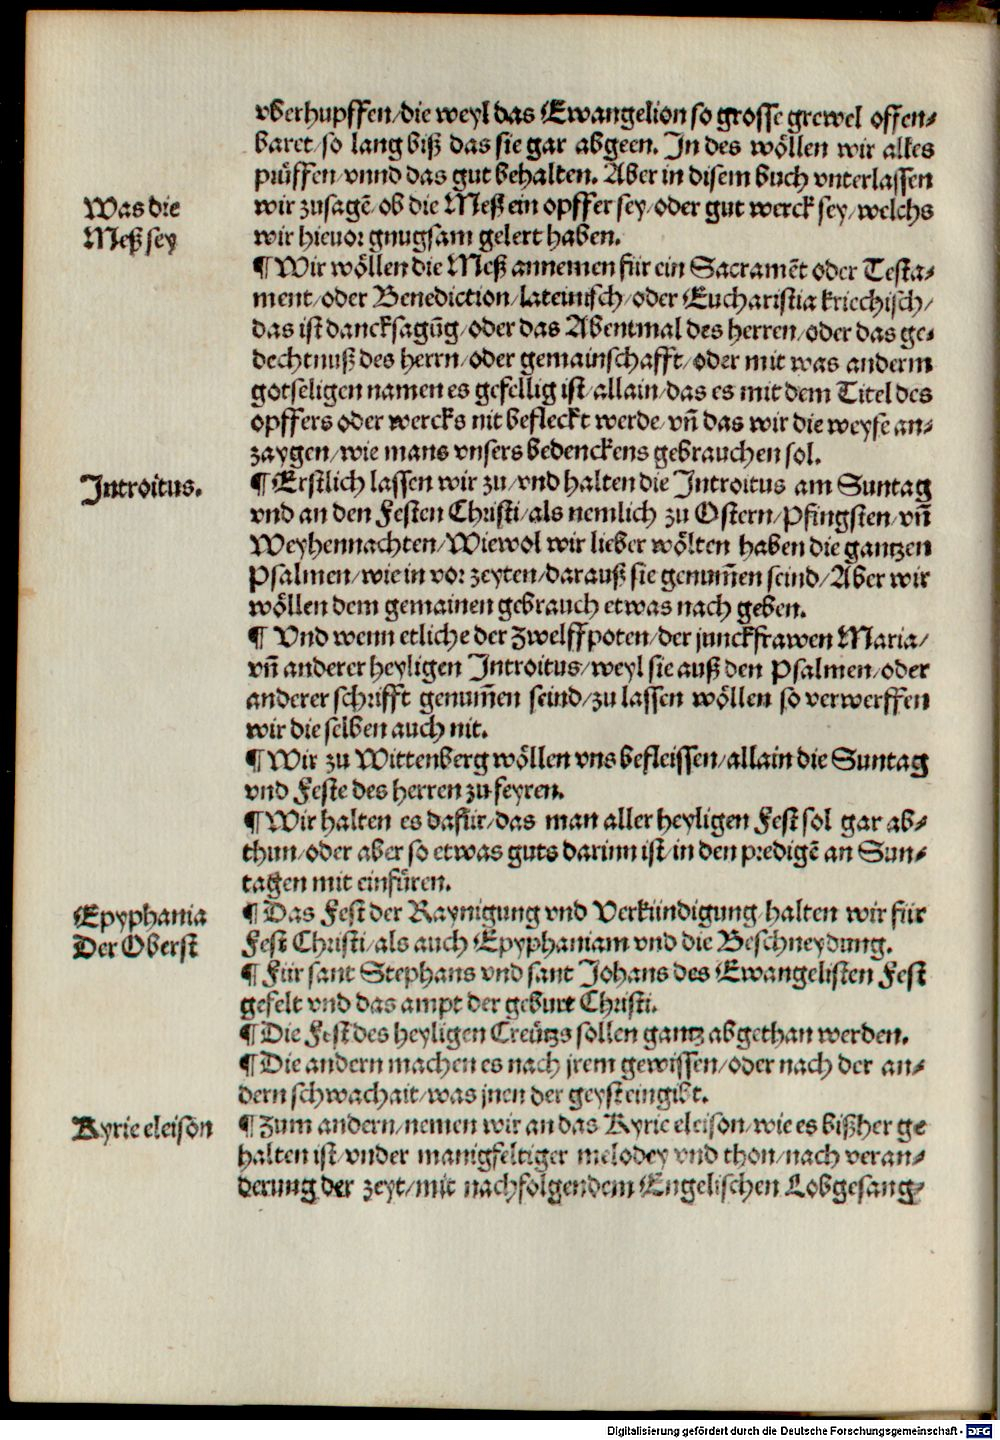 vberhupffen/die weyl das Ewangelion so grosse grewel offen-
baret/so lang biß das sie gar abgeen. In des wöllen wir alles
prüffen/vnnd das gut behalten. Aber in disem buch vnterlassen
Was die
wir zusagē/ob die Meß ein opffer sey/oder gut werck sey/welchs
Meß sey
wir hieuor gnugsam gelert haben.
¶ Wir wöllen die Meß annemen für ein Sacramēt oder Testa-
ment/oder Benediction/lateinisch/oder Eucharistia kriechisch/
das ist dancksagūg/oder das Abentmal des herren/oder das ge-
dechtnuß des herrn/oder gemainschafft/oder mit was anderm
gotseligen namen es gefellig ist/allain/das es mit dem Titel des
opffers oder wercks nit befleckt werde/vn̄ das wir die weyse an-
zaygen/wie mans vnsers bedenckens gebrauchen sol.
Introitus.
¶ Erstlich lassen wir zu/vnd halten die Introitus am Suntag
vnd an den Festen Christi/als nemlich zu Ostern/Pfingsten/vn̄
Weyhennachten/Wiewol wir lieber wölten haben die gantzen
Psalmen/wie in vor zeyten/darauß sie genum̄en seind/Aber wir
wöllen dem gemainen gebrauch etwas nach geben.
¶ Vnd wenn etliche der Zwelffpoten/der junckfrawen Maria/
vn̄ anderer heyligen Introitus/weyl sie auß den Psalmen/oder
anderer schrifft genum̄en seind/zu lassen wöllen so verwerffen
wir die selben auch nit.
¶ Wir zu Wittenberg wöllen vns befleissen/allain die Suntag
vnd Feste des herren zu feyren.
¶ Wir halten es dafür/das man aller heyligen Fest sol gar ab-
thun/oder aber so etwas guts darinn ist/in den predigē an Sun-
tagen mit einfüren.
Epyphania
¶ Das Fest der Raynigung vnd Verkündigung/halten wir für
Der Oberst
Fest Christi/als auch Epyphaniam vnd die Beschneydung.
¶ Für sant Stephans vnd sant Johans des Ewangelisten Fest
gefelt vnd das ampt der geburt Christi.
¶ Die Fest des heyligen Creützs sollen gantz abgethan werden.
¶ Die andern machen es nach jrem gewissen/oder nach der an-
dern schwachait/was jnen der geyst eingibt.
Kyrie eleison
¶ Zum andern/nemen wir an das Kyrie eleison/wie es bißher ge
halten ist/vnder manigfeltiger melodey vnd thon/nach veran-
derung der zeyt/mit nachfolgendem Engelischen Lobgesang/
Digitalisierung gefördert durch die Deutsche Forschungsgemeinschaft - DFG